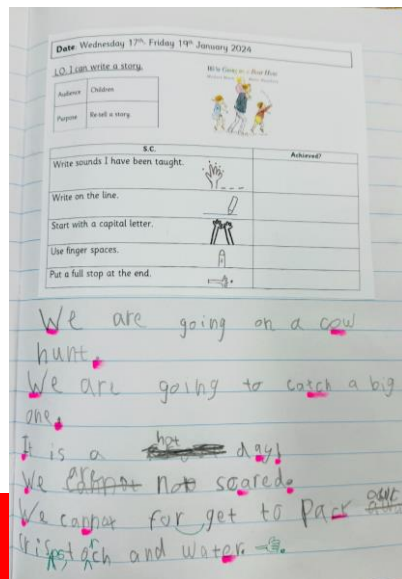 Date Wednesday 17th- Friday 19th January 2024
LO. I can write a story.
Audience Children
Purpose Re-tell a story
We're Going on a Bear Hunt
S.C. Achieved?
Write sounds I have been taught.
Write on the line.
Start with a capital letter.
Use finger spaces.
Put a full stop at the end.
We are going on a cow
hunt.
We are going to catch a big
one.
It is a hot day!
We are not scared.
We cannot for get to pack our
and water.